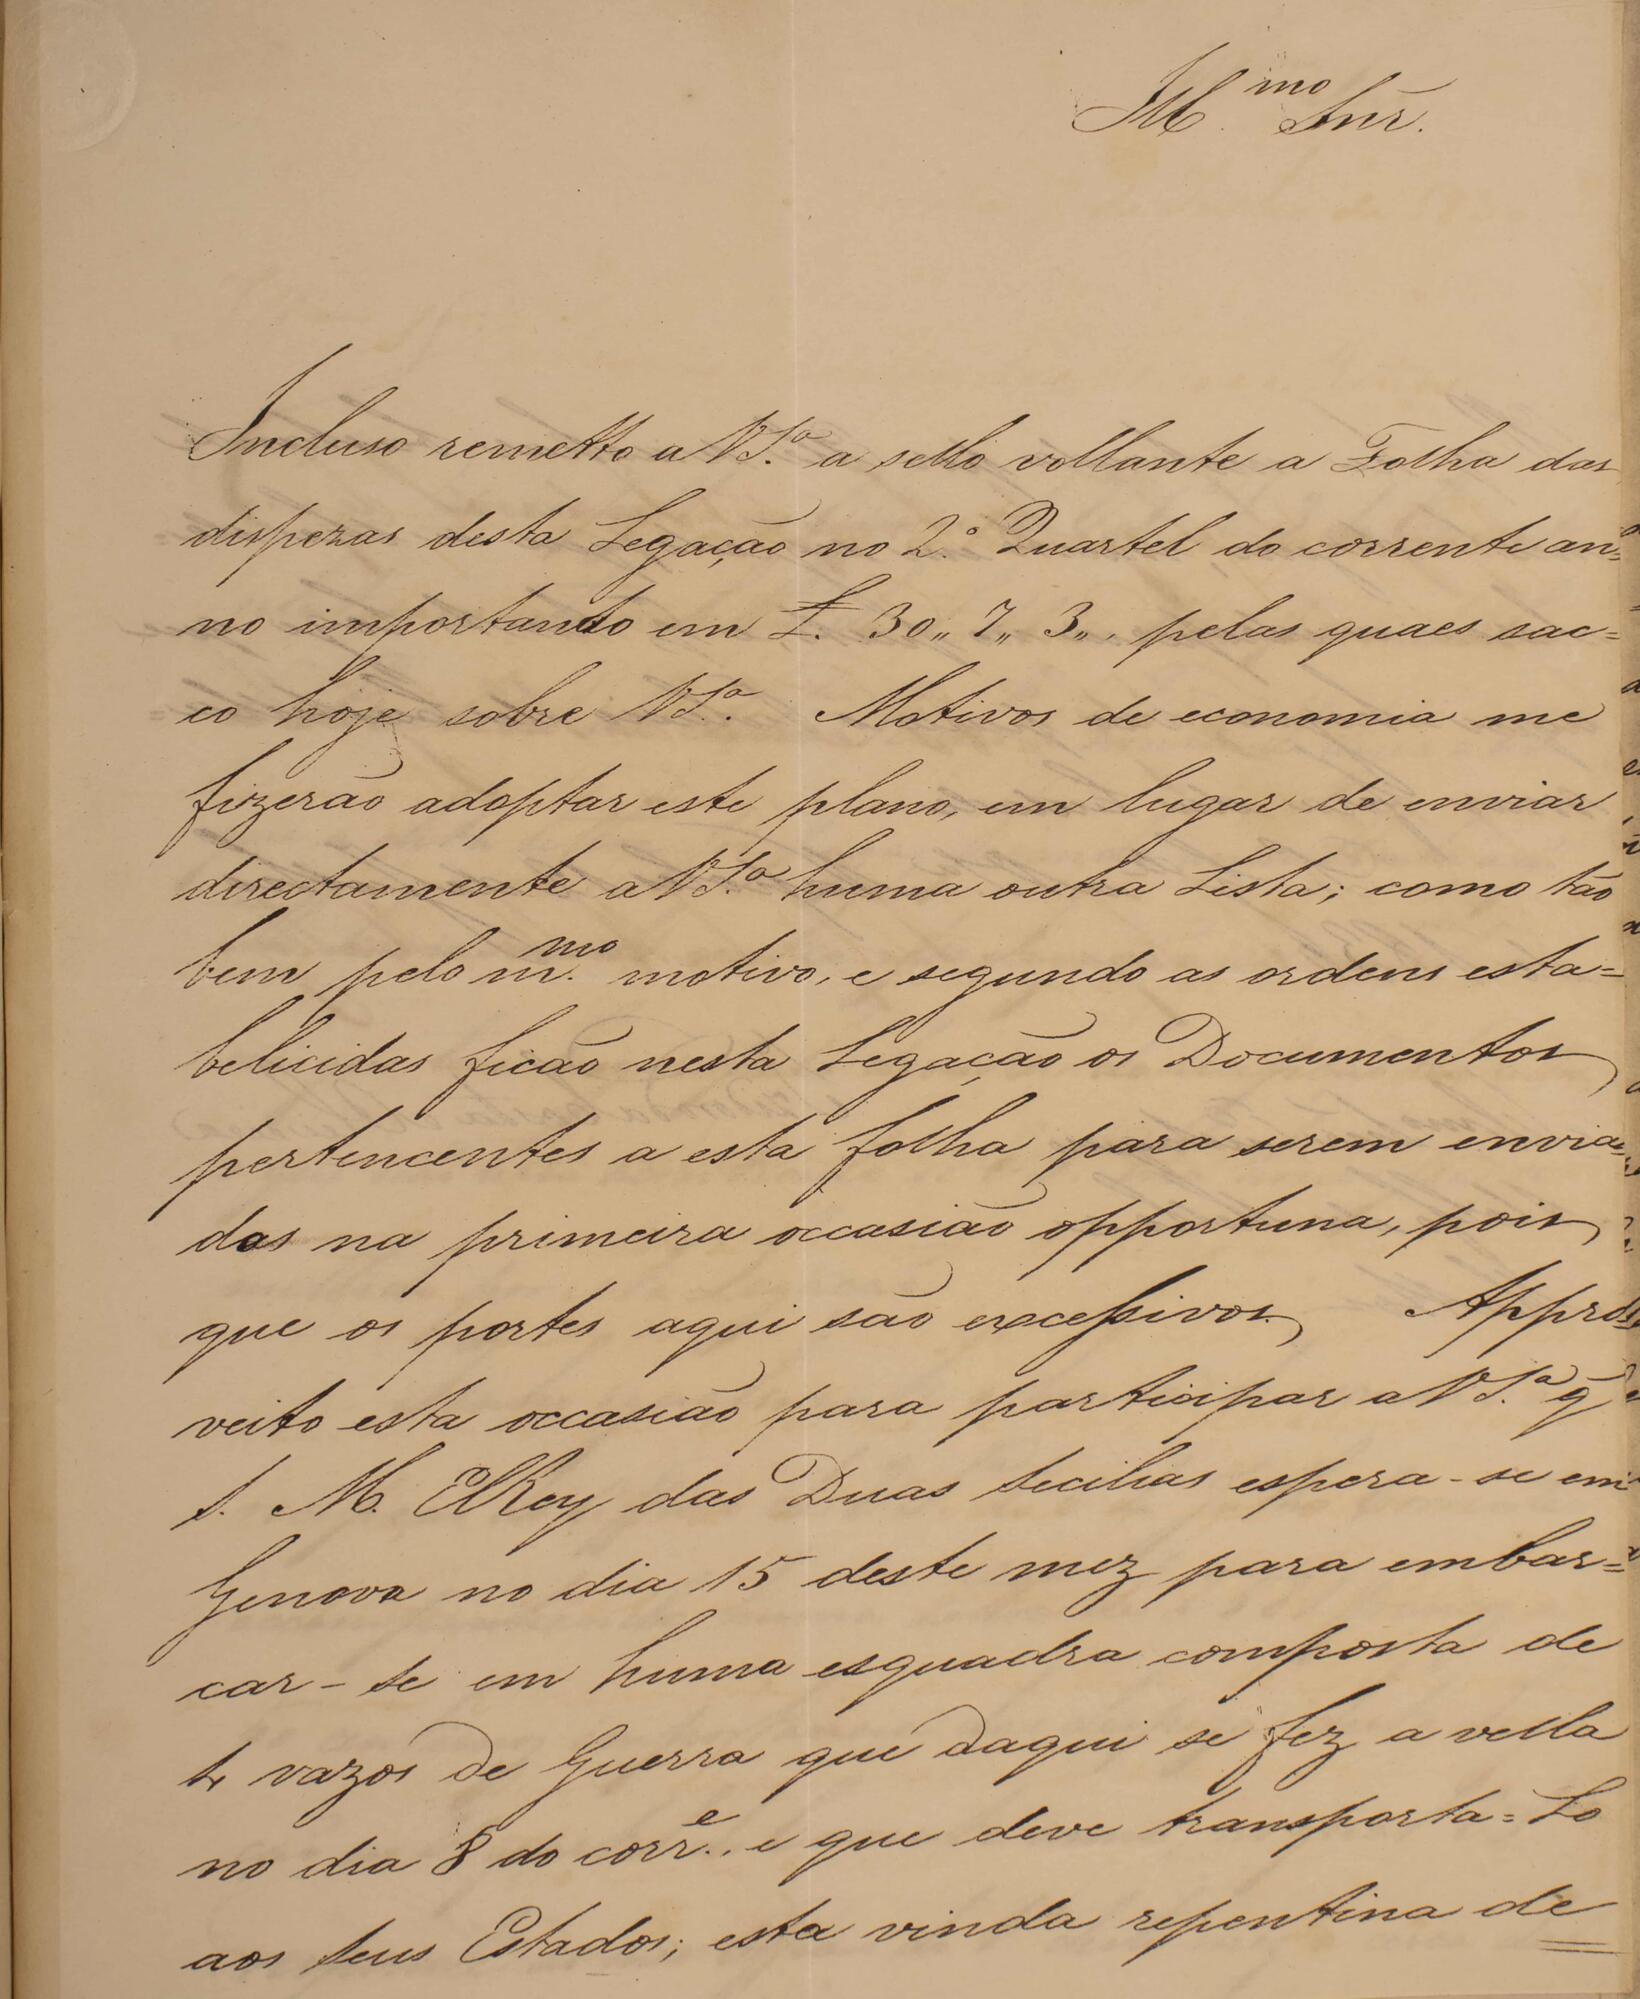 Ill.mo Snr.
Incluso remetto a V.S.ª a sello vollante a Folha das
dispezas desta Legação no 2.º Quartel do corrente an=
no importando em £. 30,, 7,, 3,,, pelas quaes sac=
co hoje sobre V.S.ª. Motivos de economia me
fizerão adoptar este plano, em lugar de enviar
directamente a V.S.ª huma outra Lista; como tão
bem pelo m.mo motivo, e segundo as ordens esta=
belicidas ficão nesta Legação os Documentos
pertencentes a esta folha para serem envia=
dos na primeira occasião opportuna, pois
que os portes aqui são excessivos. Appro=
veito esta occasião para participar a V.S.ª q̃
S. M. ElRey das Duas Secilias espera-se em
Genova no dia 15 deste mez para embar=
car-se em huma esquadra composta de
4 vazos de Guerra que daqui se fez a vella
no dia 8 do corr.e, e que deve transporta=Lo
aos seus Estados; esta vinda repentina de